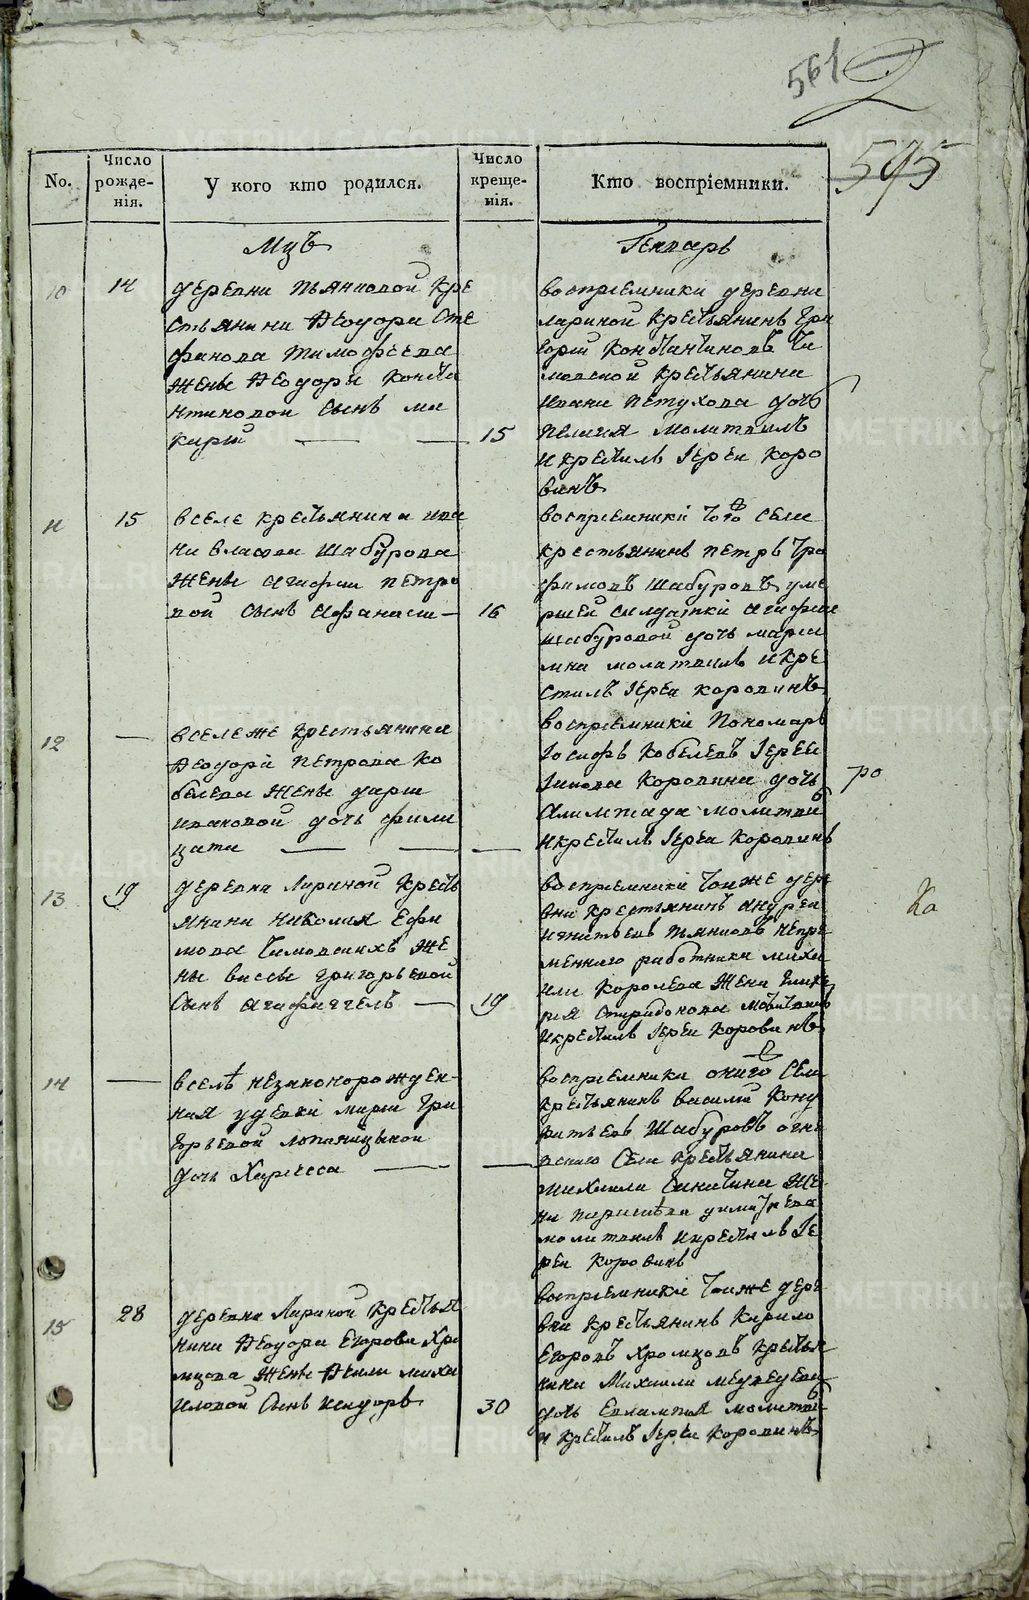 561
2
595
No.
Число рожде-нія.
У кого кто родился.
Число креще-нія.
Кто воспріемники.
Мцъ
Генварь
10
14
деревни Пьянковой кре
стьянина Ѳеодора Сте
фанова Тимофеева
жены Ѳеодоры Конста
нтиновой сынъ ма
карій
15
воспріемники деревни
Лариной крестьянинъ Гри
горій Константиновъ Ти
мовской крестьянина
Ивана Петухова дочь
Пелагия молитвилъ
и крестилъ Іерей Коро
винъ
11
15
вселе крестьянина ива
на власова Шабурова
жены агафьи петро
вой сынъ Афанаси
16
воспріемники того села
крестьянинъ петръ Тро
фимовъ Шабуровъ, уме
ршей салдатки агафьи
Шабуровой дочь марья
мна молитвилъ и кре
стилъ Іерей коровинъ
12
всележе крестьянина
Ѳеодора Петрова Ко
белева жены дарьи
ивановой дочь фили
цата
воспріемники Пономарь
Іосифъ Кобелевъ Іерея
Іакова Коровина дочь
Олимпиада молитви
и крестилъ Іерей Коровинъ
ро
13
19
деревни Лариной кресть
янина Николая Ефи
мова Тимовскихъ же
ны вассы григорьевой
сынъ агафаггелъ
19
воспріемники тоиже дере
вни крестьянинъ андрей
игнатьевъ Пьянковъ непре
меннаго работника миха
ила Королева жена Глике
рия Спиридонова молитвилъ
и крестилъ Іерей Коровинъ
Ка
14
вселѣ незаконорожден-
ная у девки марьи Гри
горьевой лопаницыной
дочь Харисса
воспріемники онаго села
крестьянинъ василий Кону
ратьевъ Шабуровъ огне
вскаго села крестьянина
михаила Синицина же
на параскѣва димитрева
молитвилъ и крестилъ Іе
рей Коровинъ
15
28
деревни Лариной крестья
нина Ѳеодора Егорова Хро
мцова жены Ѳеклы миха
иловой сынъ исидоръ
30
воспріемники тоиже дере
вни крестьянинъ Кирило
Егоровъ Хромцовъ крестья
нина Михаила медведева
дочь Евлампия молитви
и крестилъ Іерей Коровинъ